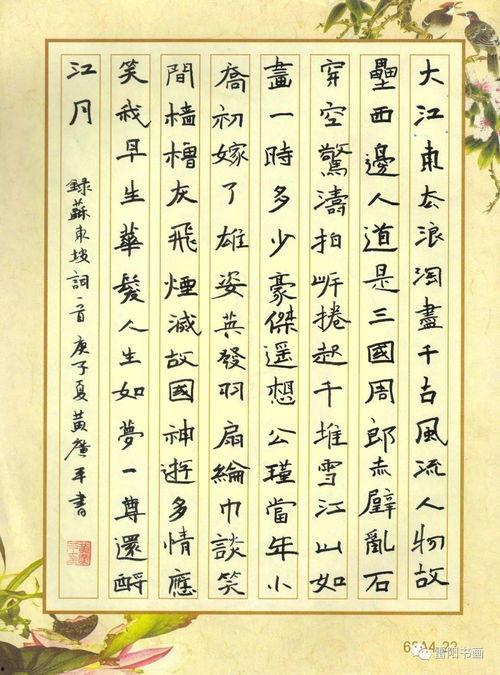 大江東去浪淘盡千古風流人物故
壘西邊人道是三國周郎赤壁亂石
穿空驚濤拍岸捲起千堆雪江山如
畫一時多少豪傑遥想公瑾當年小
喬初嫁了雄姿英發羽扇綸巾談笑
間檣櫓灰飛煙滅故國神遊多情應
笑我早生華髮人生如夢一尊還酹
江月
録蘇東坡詞一首庚子夏黄廣平書
雷阳书画